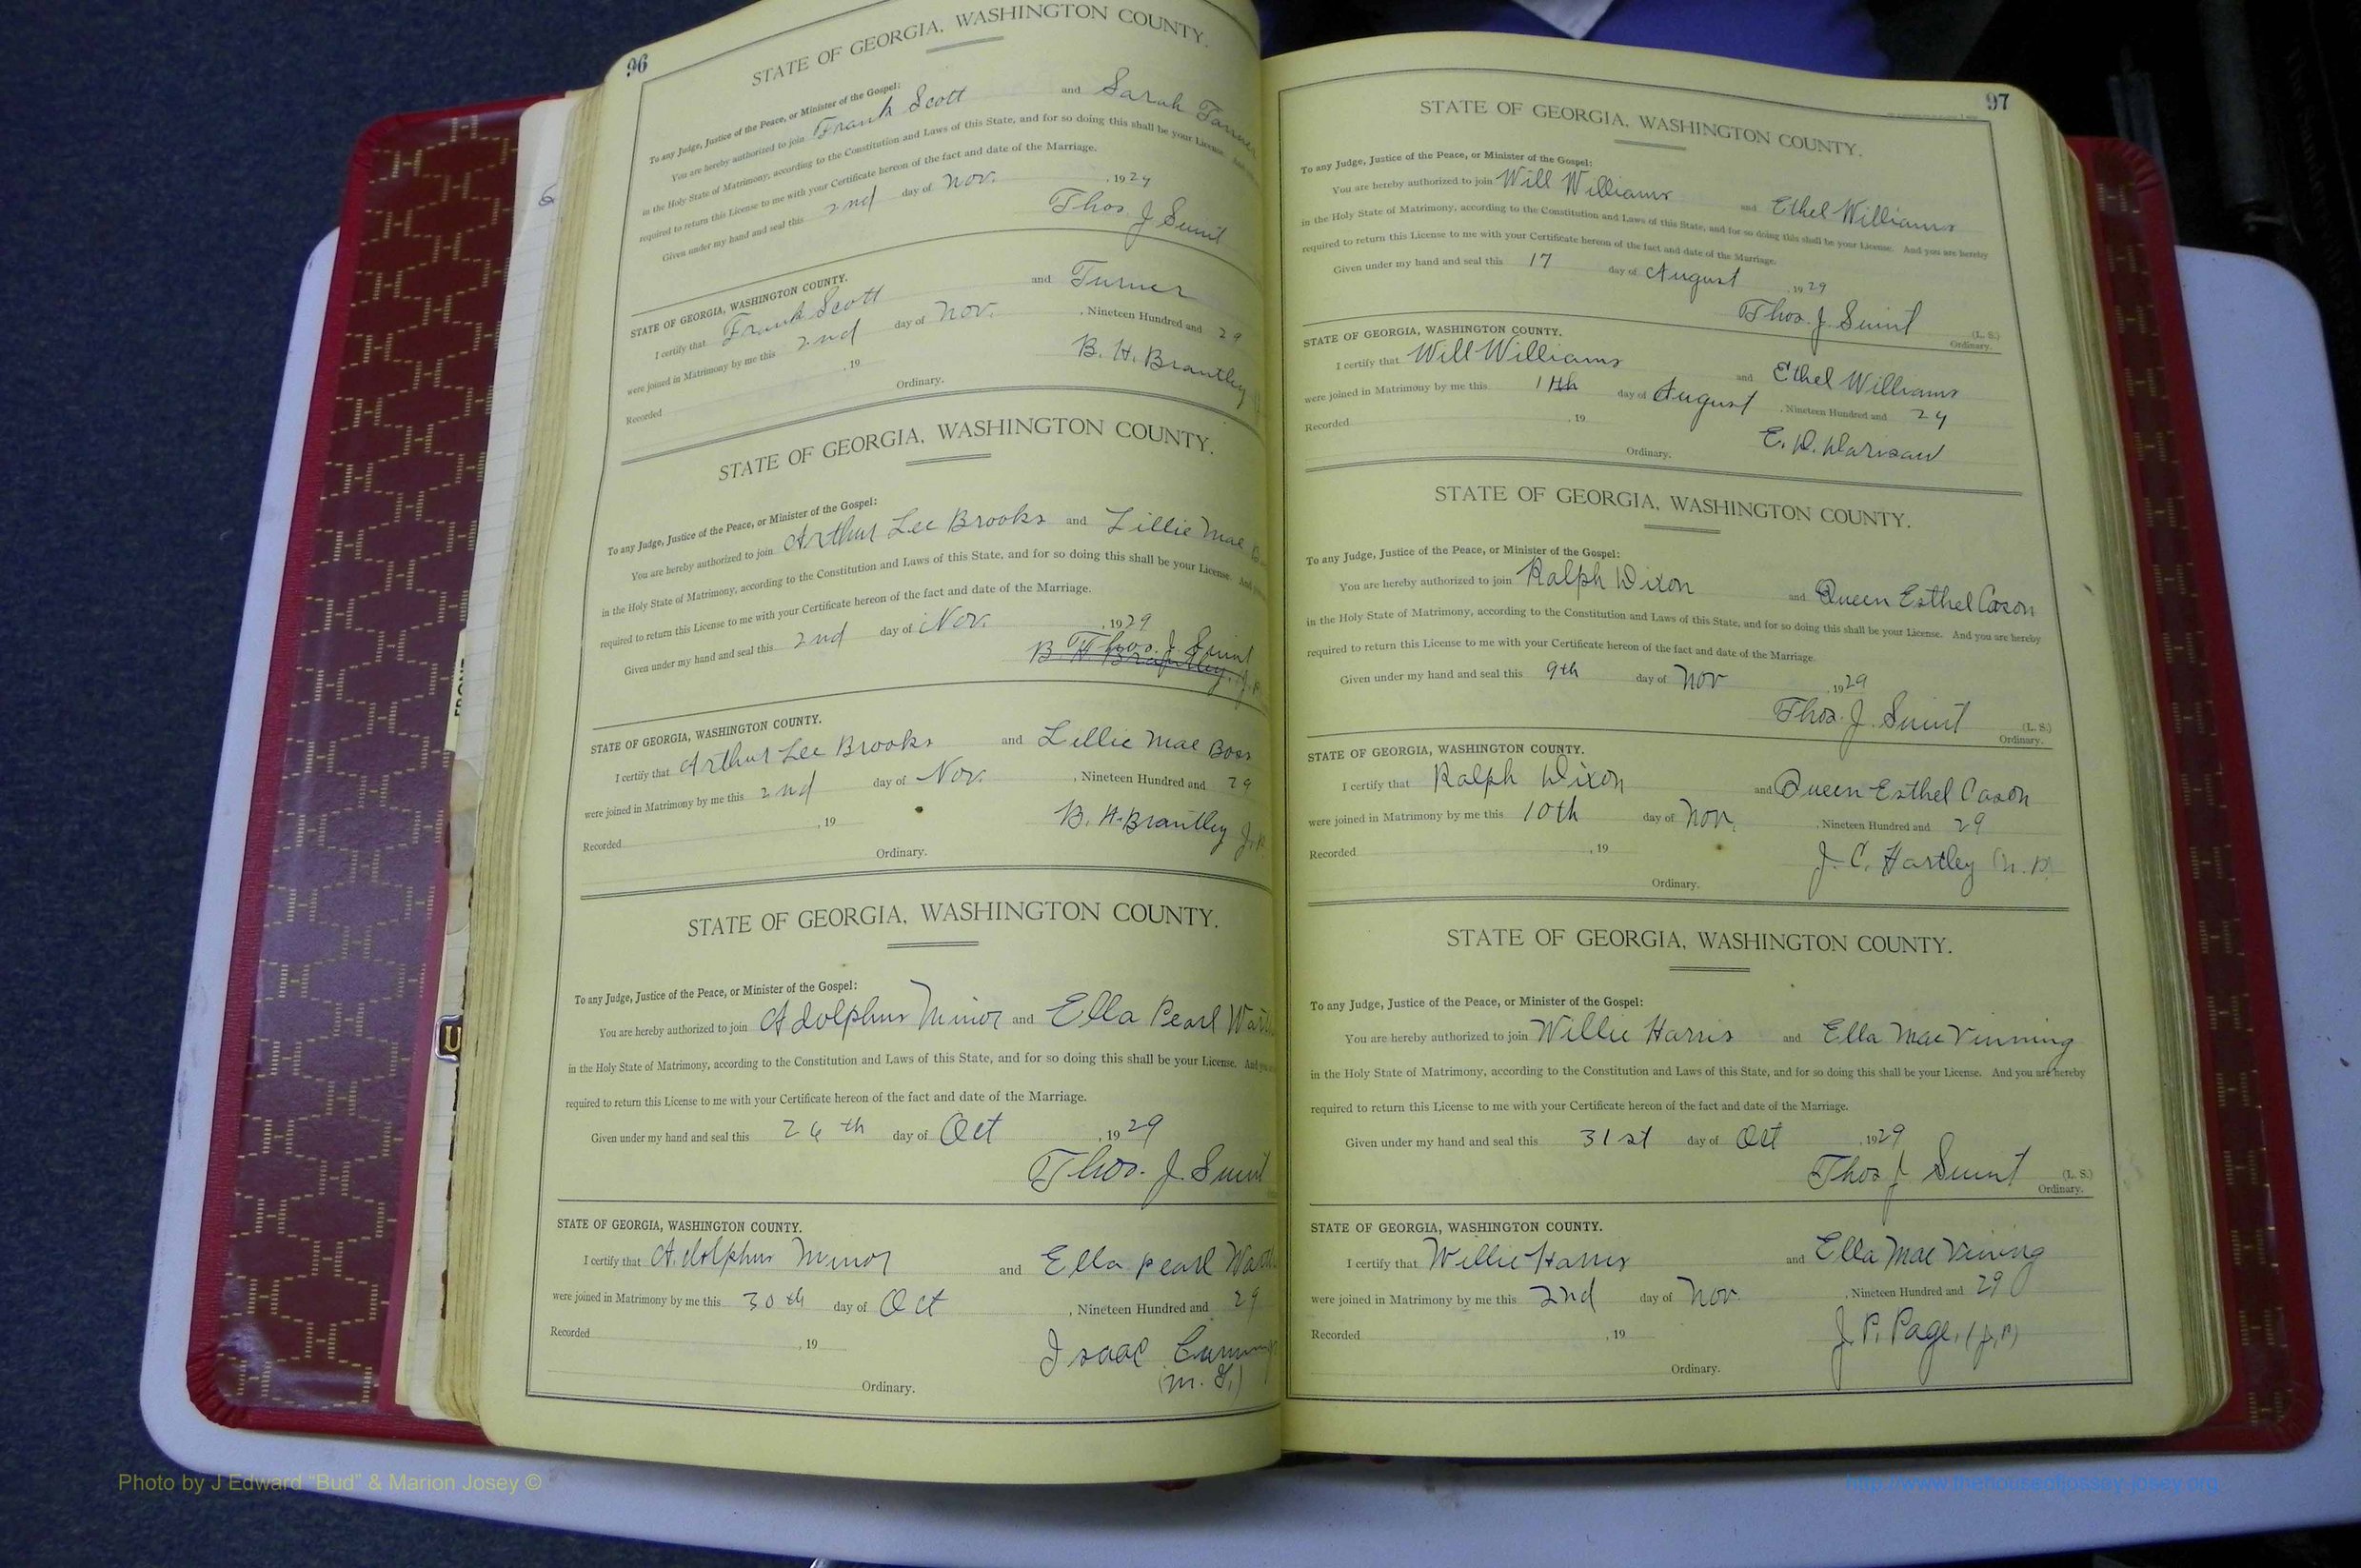 96
STATE OF GEORGIA, WASHINGTON COUNTY.
To any Judge, Justice of the Peace, or Minister of the Gospel:
You are hereby authorized to join Frank Scott and Sarah
in the Holy State of Matrimony, according to the Constitution and Laws of this State, and for so doing this shall be your License. And
required to return this License to me with your Certificate hereon of the fact and date of the Marriage.
Given under my hand and seal this 2nd day of Nov. , 1929
Thos. J. Swint
STATE OF GEORGIA, WASHINGTON COUNTY.
I certify that Frank Scott and Turner
were joined in Matrimony by me this 2nd day of Nov. , Nineteen Hundred and 29
Recorded , 19 B. H. Brantley
Ordinary.
STATE OF GEORGIA, WASHINGTON COUNTY.
To any Judge, Justice of the Peace, or Minister of the Gospel:
You are hereby authorized to join Arthur Lee Brooks and Lillie Mae
in the Holy State of Matrimony, according to the Constitution and Laws of this State, and for so doing this shall be your License. And
required to return this License to me with your Certificate hereon of the fact and date of the Marriage.
Given under my hand and seal this 2nd day of Nov. , 1929
Thos. J. Swint
B H Brantley, J.P.
STATE OF GEORGIA, WASHINGTON COUNTY.
I certify that Arthur Lee Brooks and Lillie Mae Boss
were joined in Matrimony by me this 2nd day of Nov. , Nineteen Hundred and 29
Recorded , 19 B. H. Brantley J.P.
Ordinary.
STATE OF GEORGIA, WASHINGTON COUNTY.
To any Judge, Justice of the Peace, or Minister of the Gospel:
You are hereby authorized to join Adolphus Minor and Ella Pearl
in the Holy State of Matrimony, according to the Constitution and Laws of this State, and for so doing this shall be your License. And
required to return this License to me with your Certificate hereon of the fact and date of the Marriage.
Given under my hand and seal this 26th day of Oct , 1929
Thos. J. Swint
STATE OF GEORGIA, WASHINGTON COUNTY.
I certify that Adolphus Minor and Ella Pearl
were joined in Matrimony by me this 30th day of Oct , Nineteen Hundred and 29
Recorded , 19 Isaac
(M. G.)
Ordinary.
97
STATE OF GEORGIA, WASHINGTON COUNTY.
To any Judge, Justice of the Peace, or Minister of the Gospel:
You are hereby authorized to join Will Williams and Ethel Williams
in the Holy State of Matrimony, according to the Constitution and Laws of this State, and for so doing this shall be your License. And you are hereby
required to return this License to me with your Certificate hereon of the fact and date of the Marriage.
Given under my hand and seal this 17 day of August , 1929
Thos. J. Swint (L. S.)
Ordinary.
STATE OF GEORGIA, WASHINGTON COUNTY.
I certify that Will Williams and Ethel Williams
were joined in Matrimony by me this day of August , Nineteen Hundred and 29
Recorded , 19 E. D.
Ordinary.
STATE OF GEORGIA, WASHINGTON COUNTY.
To any Judge, Justice of the Peace, or Minister of the Gospel:
You are hereby authorized to join Ralph Dixon and Queen Esthel Cason
in the Holy State of Matrimony, according to the Constitution and Laws of this State, and for so doing this shall be your License. And you are hereby
required to return this License to me with your Certificate hereon of the fact and date of the Marriage.
Given under my hand and seal this 9th day of Nov , 1929
Thos. J. Swint (L. S.)
Ordinary.
STATE OF GEORGIA, WASHINGTON COUNTY.
I certify that Ralph Dixon and Queen Esthel Cason
were joined in Matrimony by me this 10th day of Nov. , Nineteen Hundred and 29
Recorded , 19 J. C. Hartley (N. P.)
Ordinary.
STATE OF GEORGIA, WASHINGTON COUNTY.
To any Judge, Justice of the Peace, or Minister of the Gospel:
You are hereby authorized to join Willie Harris and Ella Mae Vinning
in the Holy State of Matrimony, according to the Constitution and Laws of this State, and for so doing this shall be your License. And you are hereby
required to return this License to me with your Certificate hereon of the fact and date of the Marriage.
Given under my hand and seal this 31st day of Oct , 1929
Thos J Swint (L. S.)
Ordinary.
STATE OF GEORGIA, WASHINGTON COUNTY.
I certify that Willie Harris and Ella Mae Vining
were joined in Matrimony by me this 2nd day of Nov. , Nineteen Hundred and 29
Recorded , 19 J. P. Page, (J.P)
Ordinary.
Photo by J Edward “Bud” & Marion Josey ©
http://www.thehouseofjossey-josey.org